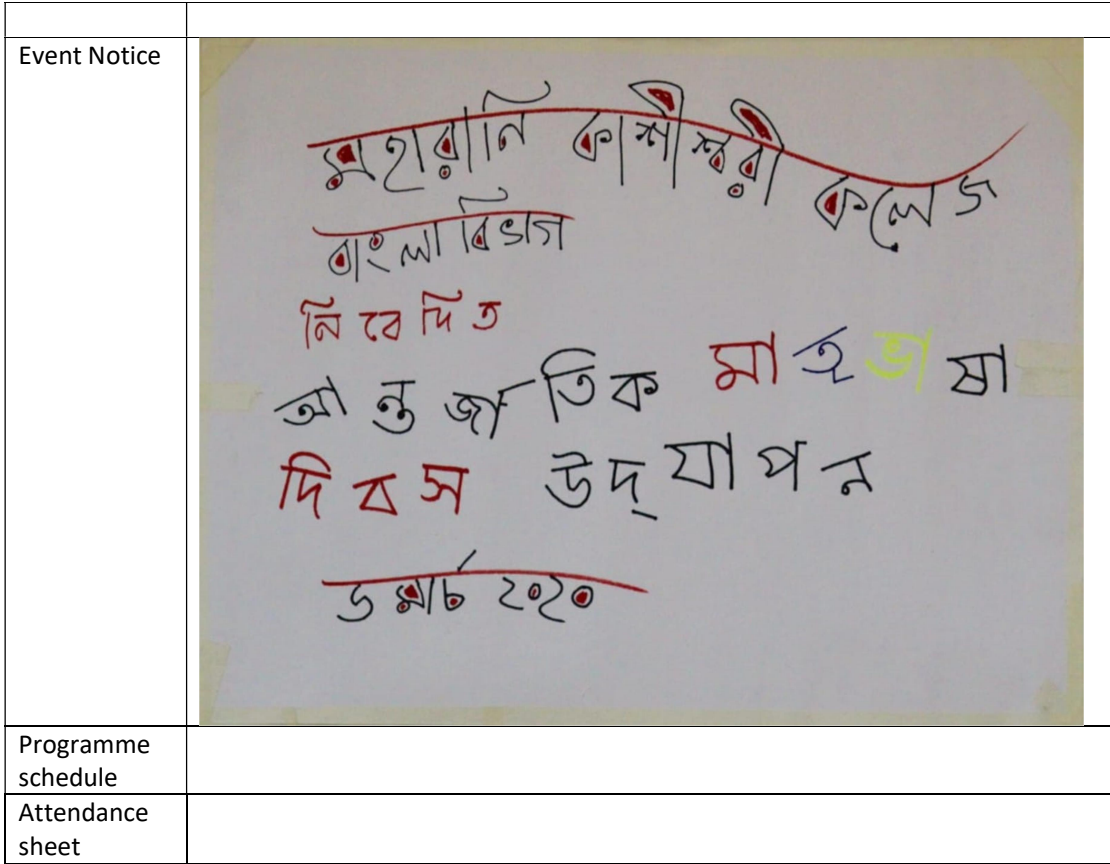 Event Notice
মহারানি কাশীশ্বরী কলেজ
বাংলা বিভাগ
নিবেদিত
আন্তর্জাতিক মাতৃভাষা
দিবস উদ্‌যাপন
৬ মার্চ ২০২০
Programme
schedule
Attendance
sheet